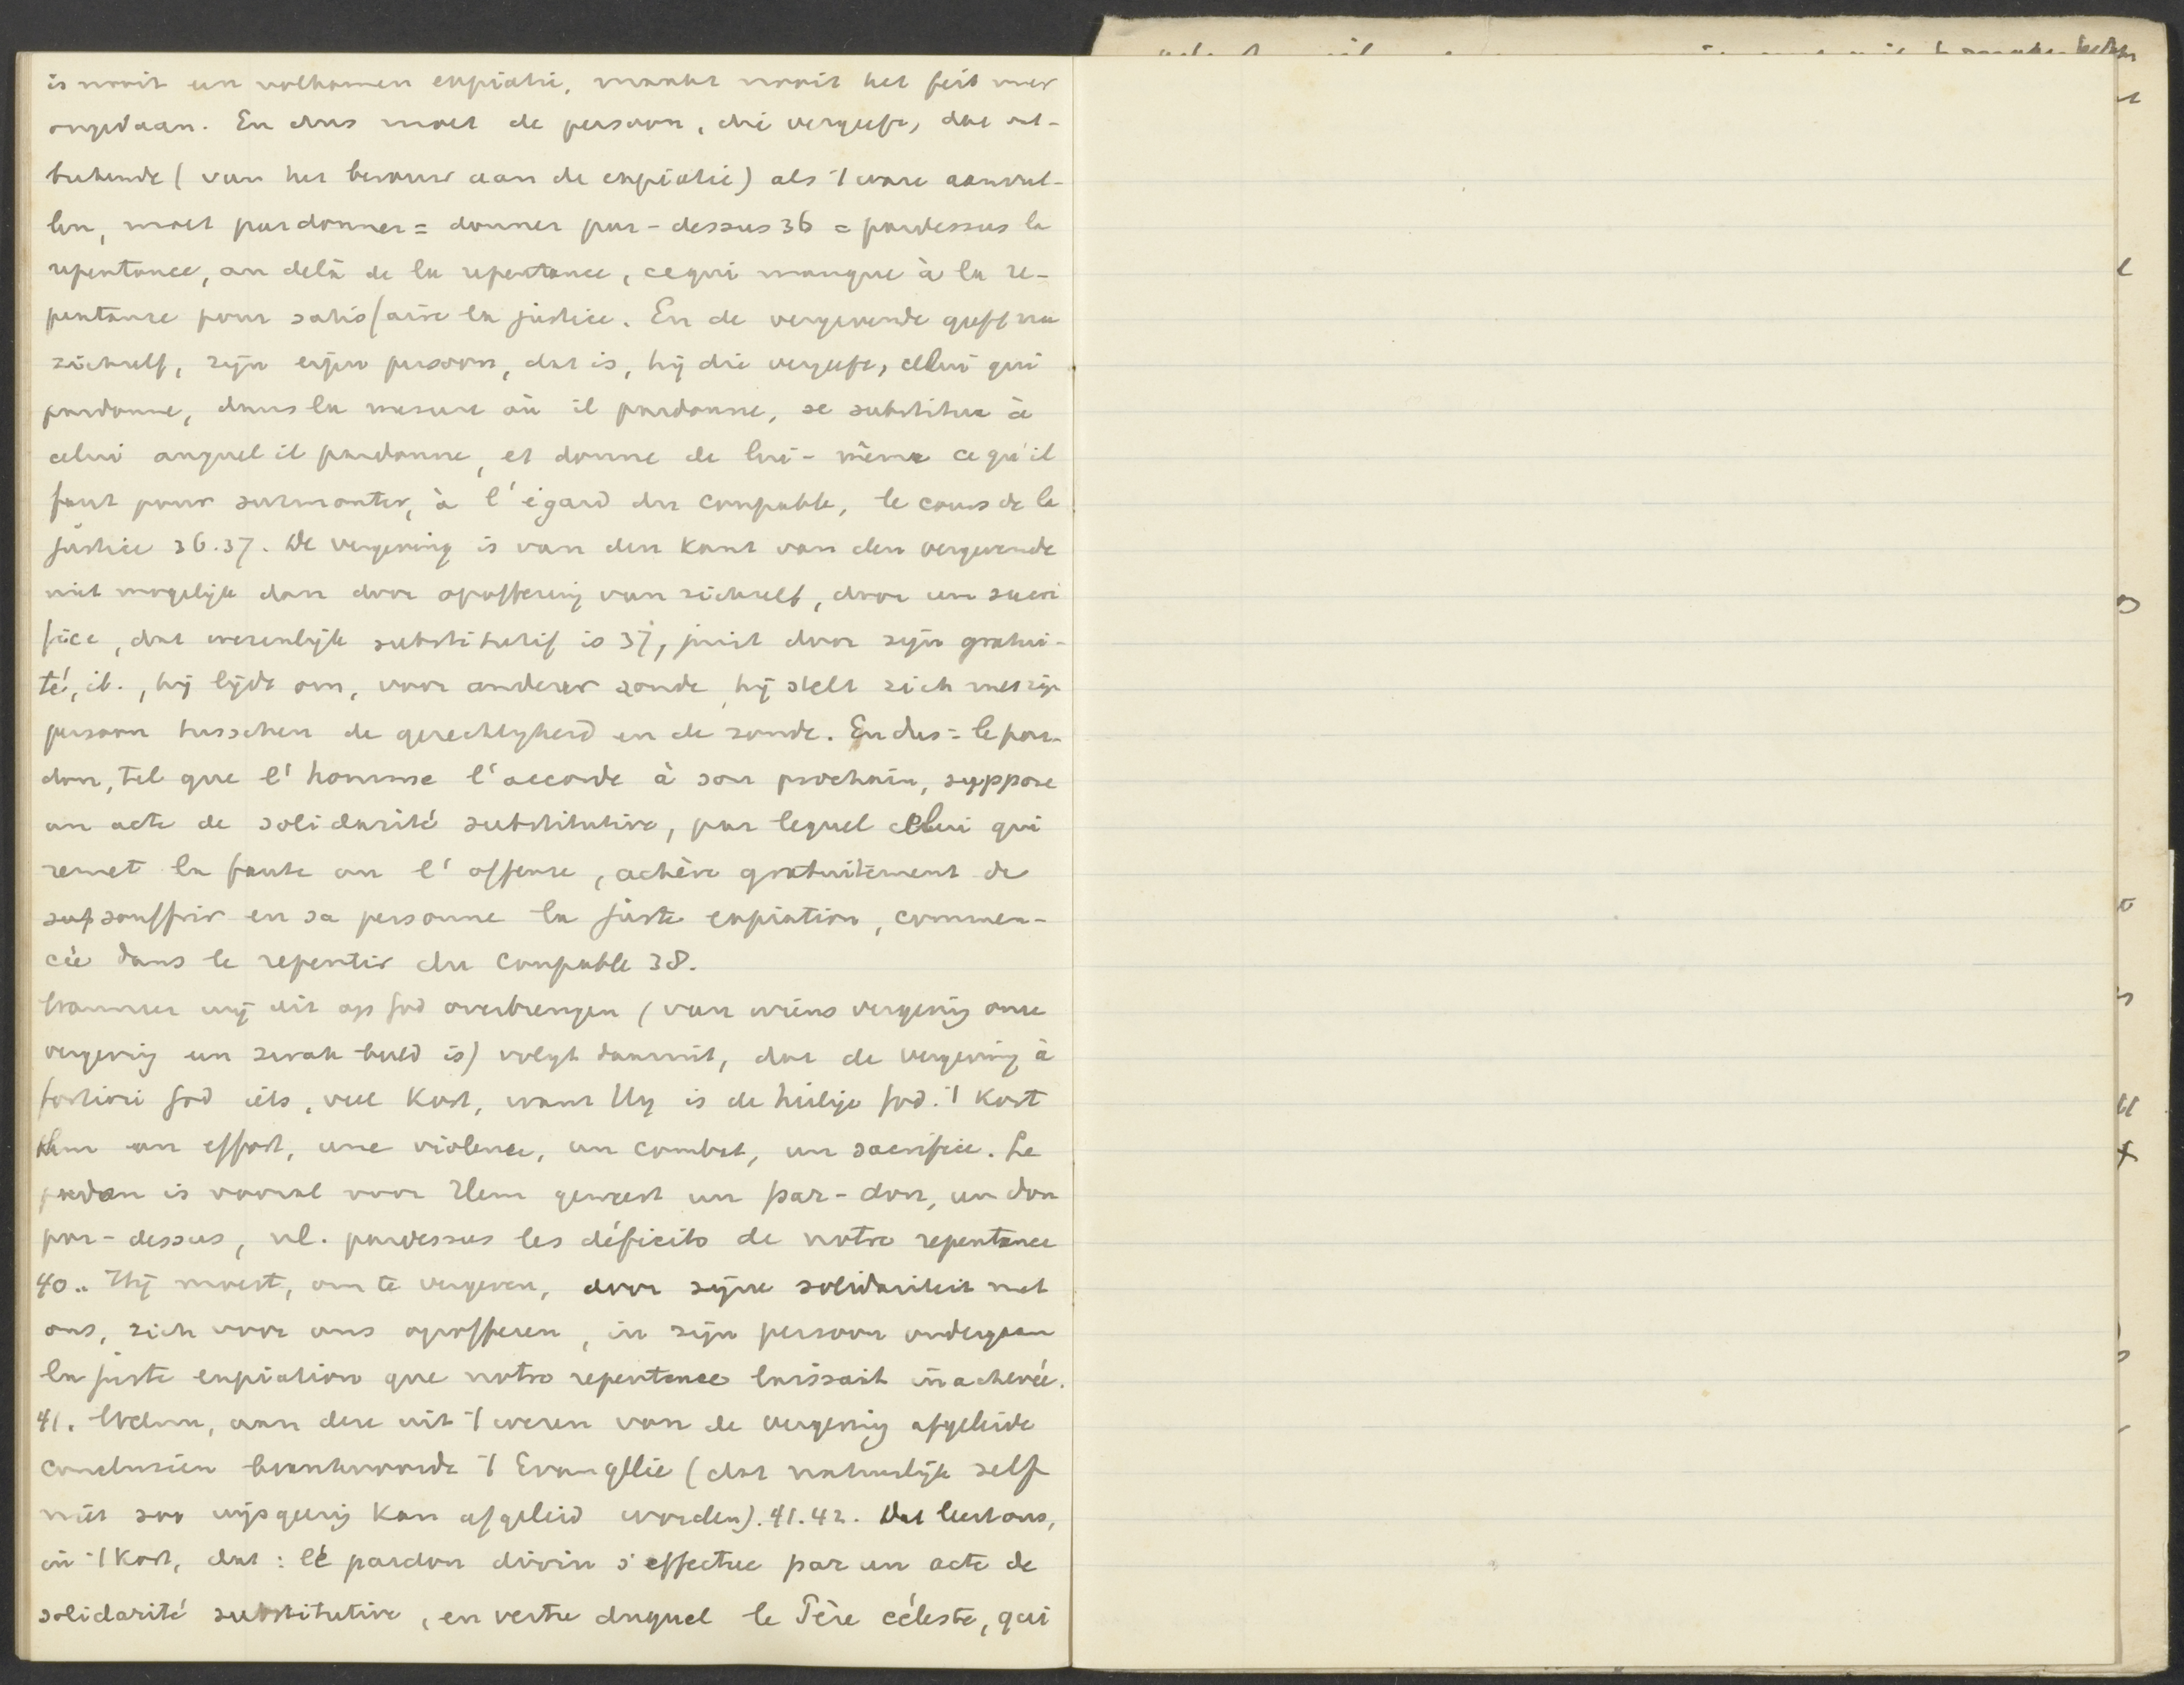 is nooit een volkomen expiatie, maakt nooit het feit meer
ongedaan. En dus moet de persoon, die vergeeft, dat ont-
brekende (van het berouw aan de expiatie) als 't ware aanvul-
len, moet pardonner = donner par-dessus 36 = pardessus la
repentance, au delà de la repentance, ce qui manque à la re-
pentance pour satisfaire la justice. En de vergevende geeft nu
zichzelf, zijn eigen persoon, dat is, hij die vergeeft, celui qui
pardonne, dans la mesure où il pardonne, se substitue à
celui auquel il pardonne, et donne de lui-même ce qu'il
faut pour surmonter, à l'égard du coupable, le cours de la
justice 36.37. De vergeving is van den kant van den vergevende
niet mogelijk dan door opoffering van zichzelf, door un sacri
fice, dat werenlijk substitutif is 37, juist door zijn gratui-
té, ib., hij lijdt om, voor anderer zonde, hij stelt zich met zijn
persoon tusschen de gerechtigheid en de zonde. En dus = le par-
don, tel que l'homme l'accorde à son prochain, suppose
un acte de solidarité substitutive, par lequel celui qui
remet la faute ou l'offense, achève gratuitement de
souffrir en sa personne la juste expiation, commen-
cée dans le repentir du coupable 38.
Wanneer wij dit op God overbrengen (van wiens vergeving onze
vergeving een zwak beeld is) volgt daaruit, dat de vergeving à
fortiori God iets, veel kost, want Hij is de heilige God. 't Kost
Hem un effort, une violence, un combat, un sacrifice. Le
pardon is vooral voor Hem geweest un par-don, un don
par-dessus, nl. pardessus les déficits de notre repentance
40.. Hij moest, om te vergeven, door zijne solidariteit met
ons, zich voor ons opofferen, in zijn persoon ondergaan
la juste expiation que notre repentance laissait inachevée.
41. Welnu, aan deze uit 't wezen van de vergeving afgeleide
conclusiën beantwoordt 't Evangelie (dat natuurlijk zelf
niet zoo wijsgeerig kan afgeleid worden). 41.42. Dat leert ons,
in 't kort, dat: le pardon divin s'effectue par un acte de
solidarité substitutive, en vertu duquel le Père céleste, qui